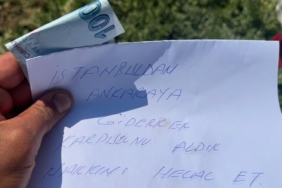 100
İSTANBULDAN
ANKARAYA
GİDERKEN
KARPUZUNU ALDIK
HAKKINI HELAL ET.